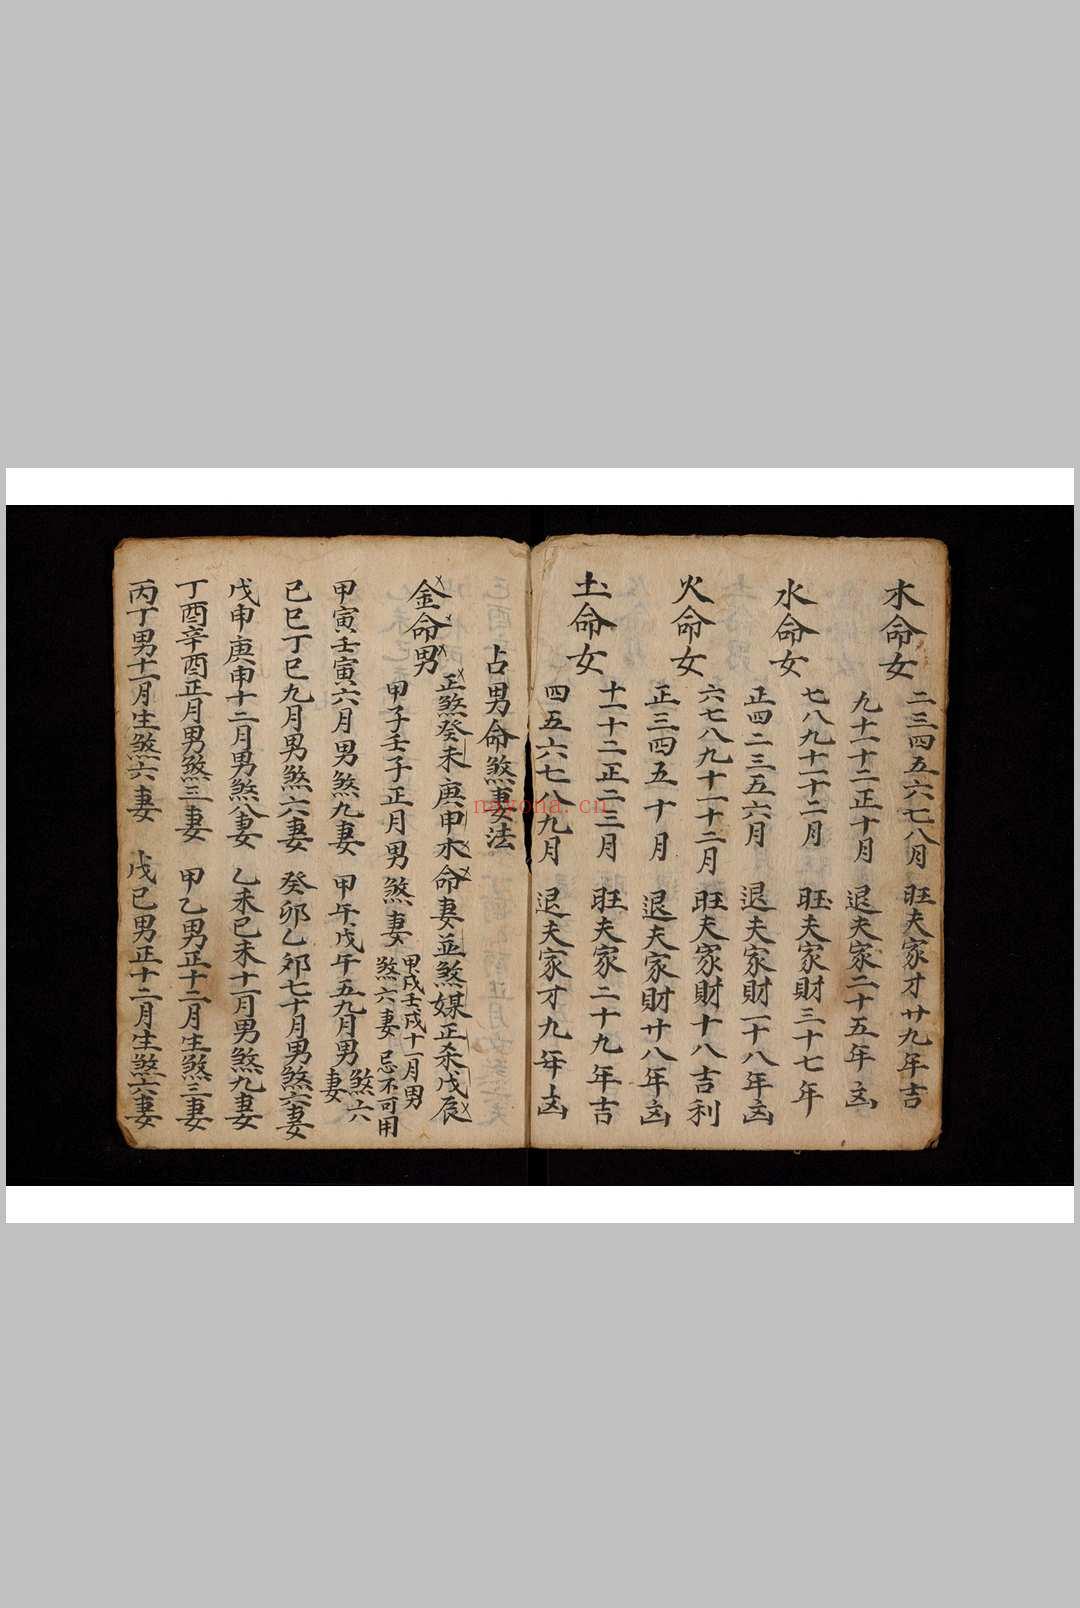 木命女
二三四五六七八月 旺夫家才廿九年吉
九十十一十二正十月 退夫家二十五年凶
水命女
七八九十一十二月 旺夫家財三十七年
正四二三五六月 退夫家財一十八年凶
火命女
六七八九十一十二月 旺夫家財十八吉利
正三四五十月 退夫家財廿八年凶
土命女
十一十二正二三月 旺夫家二十九年吉
四五六七八九月 退夫家才九年凶
占男命煞妻法
金命男
正煞癸未庚申水命妻並煞媒正杀戊辰
甲子壬子正月男煞妻 甲戌壬戌十一月男煞六妻 忌不可用
甲寅壬寅六月男煞九妻 甲午戊午五九月男煞六妻
己巳丁巳九月男煞六妻 癸卯乙卯七十月男煞六妻
戊申庚申十二月男煞八妻 乙未己未十一月男煞九妻
丁酉辛酉正月男煞三妻 甲乙男正十二月生煞三妻
丙丁男十一月生煞六妻 戊己男正十二月生煞六妻
nayona.cn